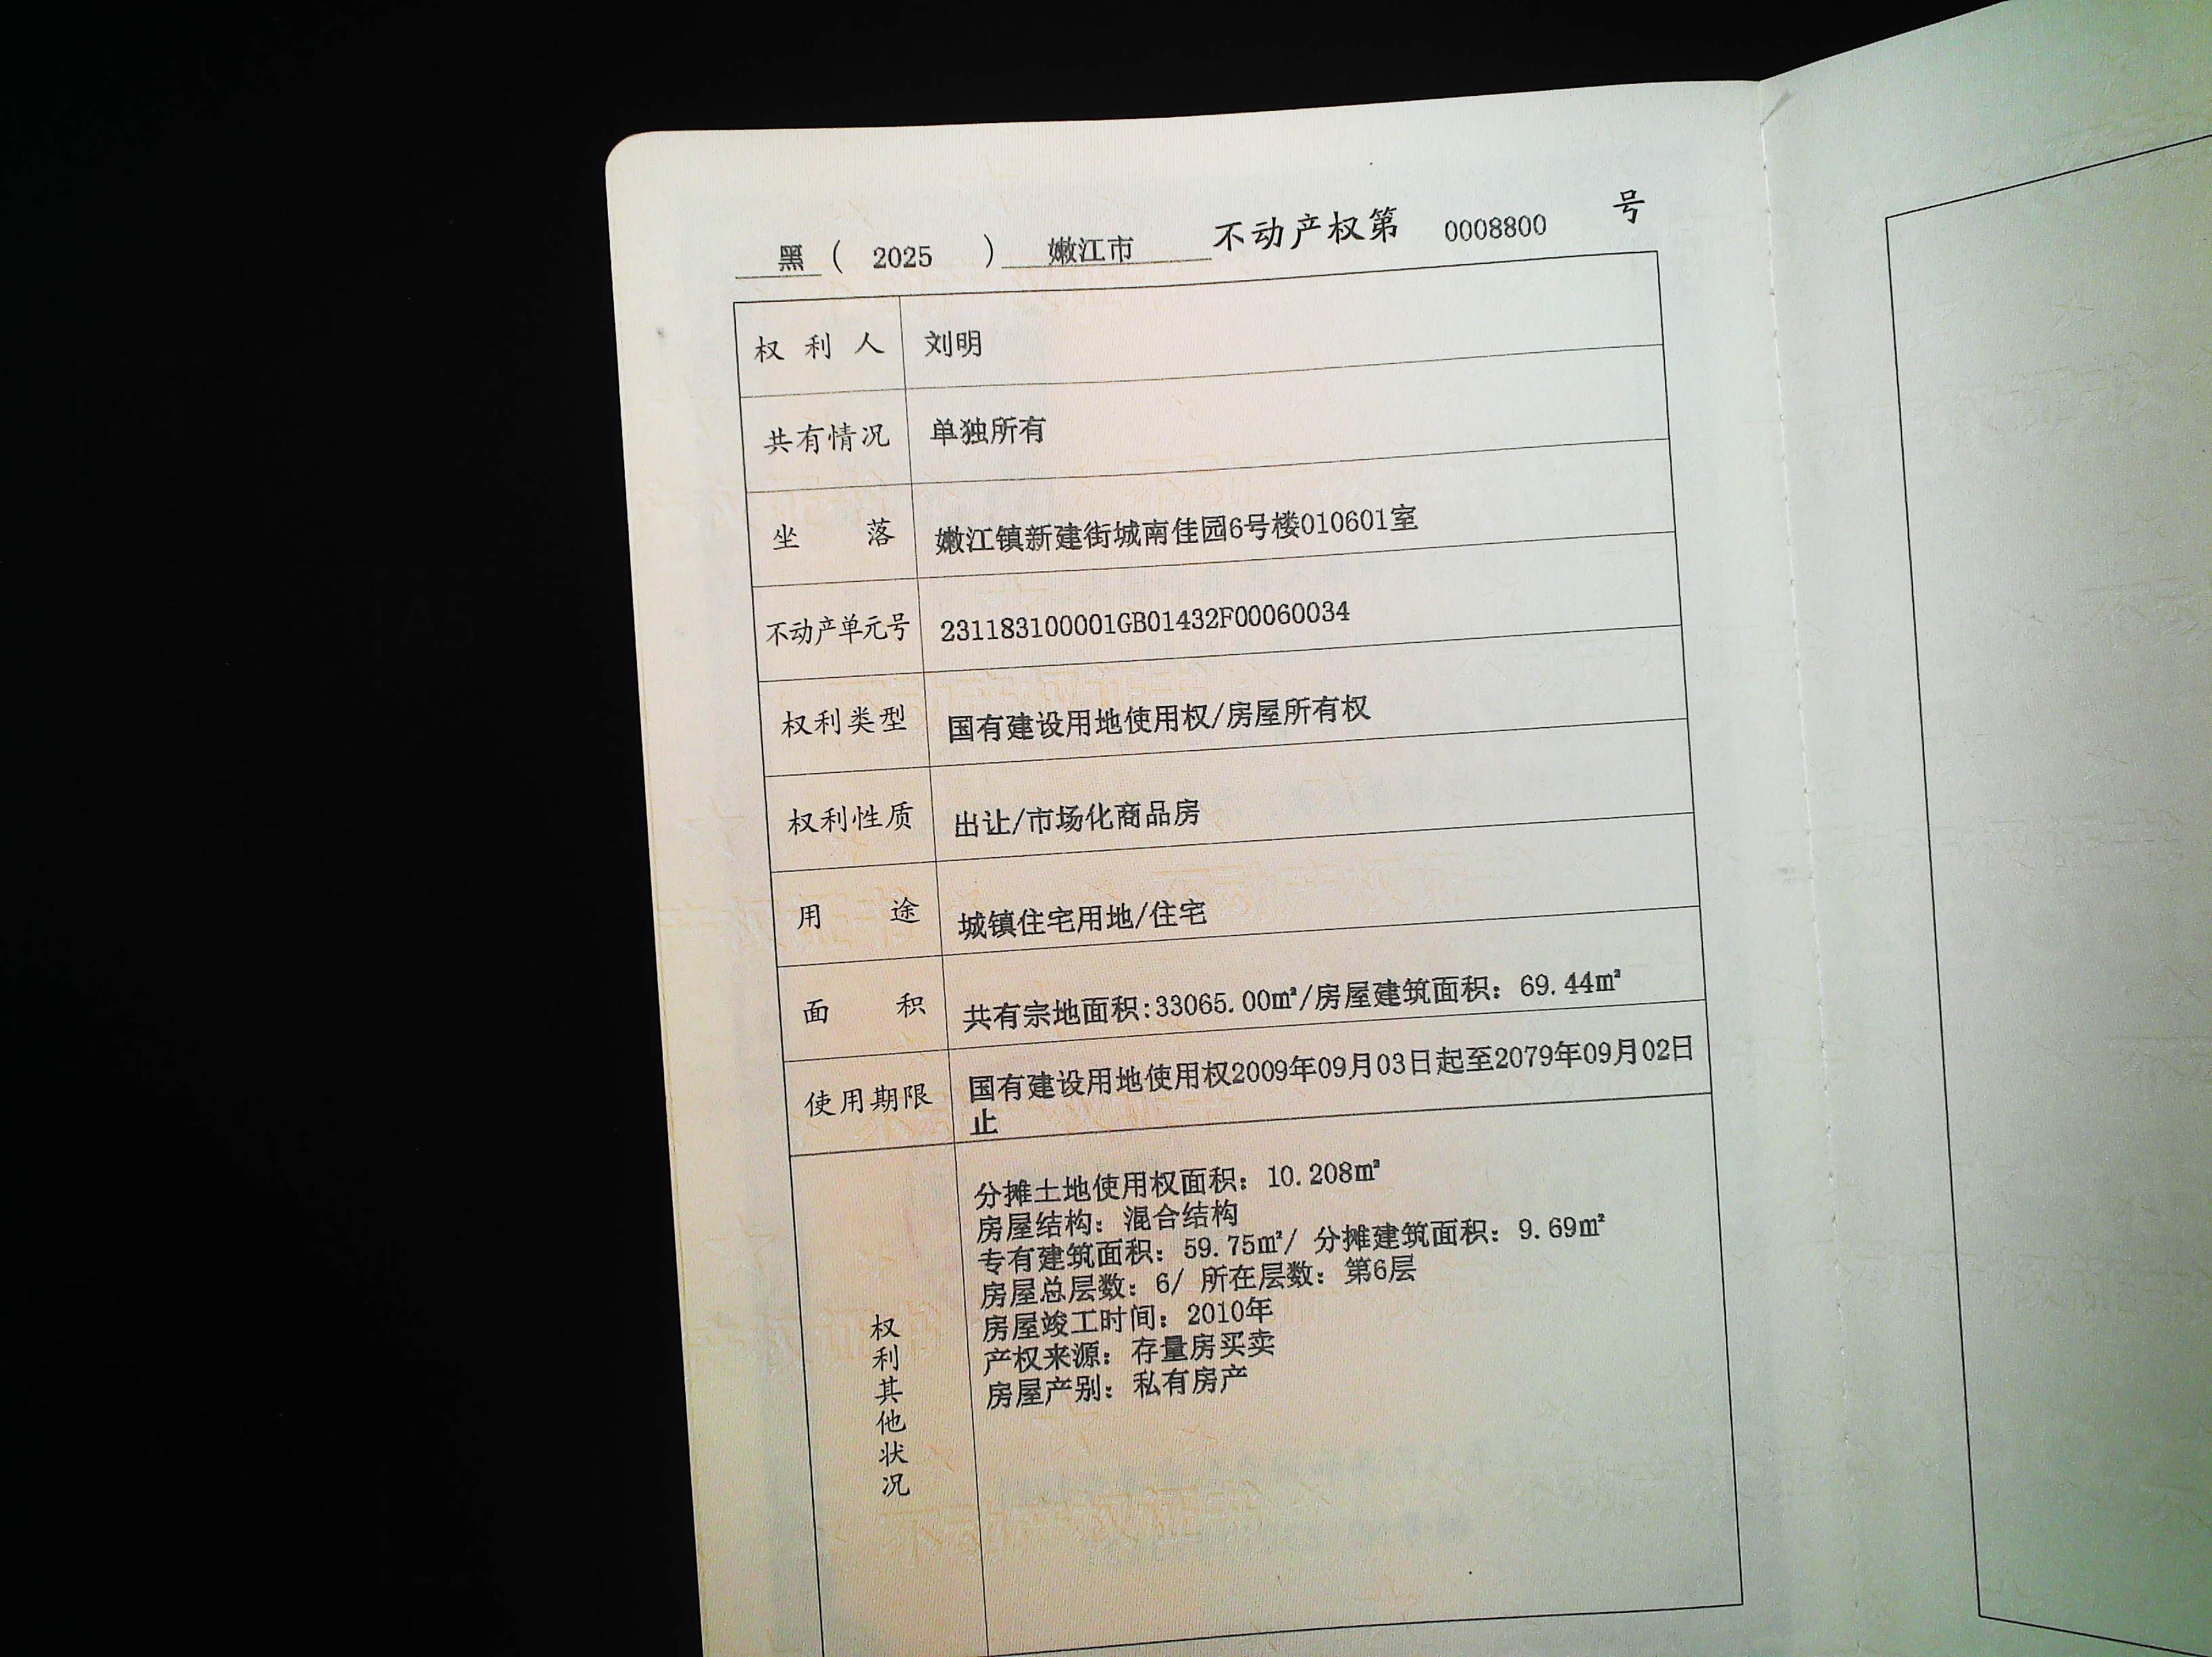 黑 ( 2025 ) 嫩江市 不动产权第 0008800 号
权利人 刘明
共有情况 单独所有
坐落 嫩江镇新建街城南佳园6号楼010601室
不动产单元号 231183100001GB01432F00060034
权利类型 国有建设用地使用权/房屋所有权
权利性质 出让/市场化商品房
用途 城镇住宅用地/住宅
面积 共有宗地面积:33065.00㎡/房屋建筑面积：69.44㎡
使用期限 国有建设用地使用权2009年09月03日起至2079年09月02日
止
权利其他状况
分摊土地使用权面积：10.208㎡
房屋结构：混合结构
专有建筑面积：59.75㎡/ 分摊建筑面积：9.69㎡
房屋总层数：6/ 所在层数：第6层
房屋竣工时间：2010年
产权来源：存量房买卖
房屋产别：私有房产